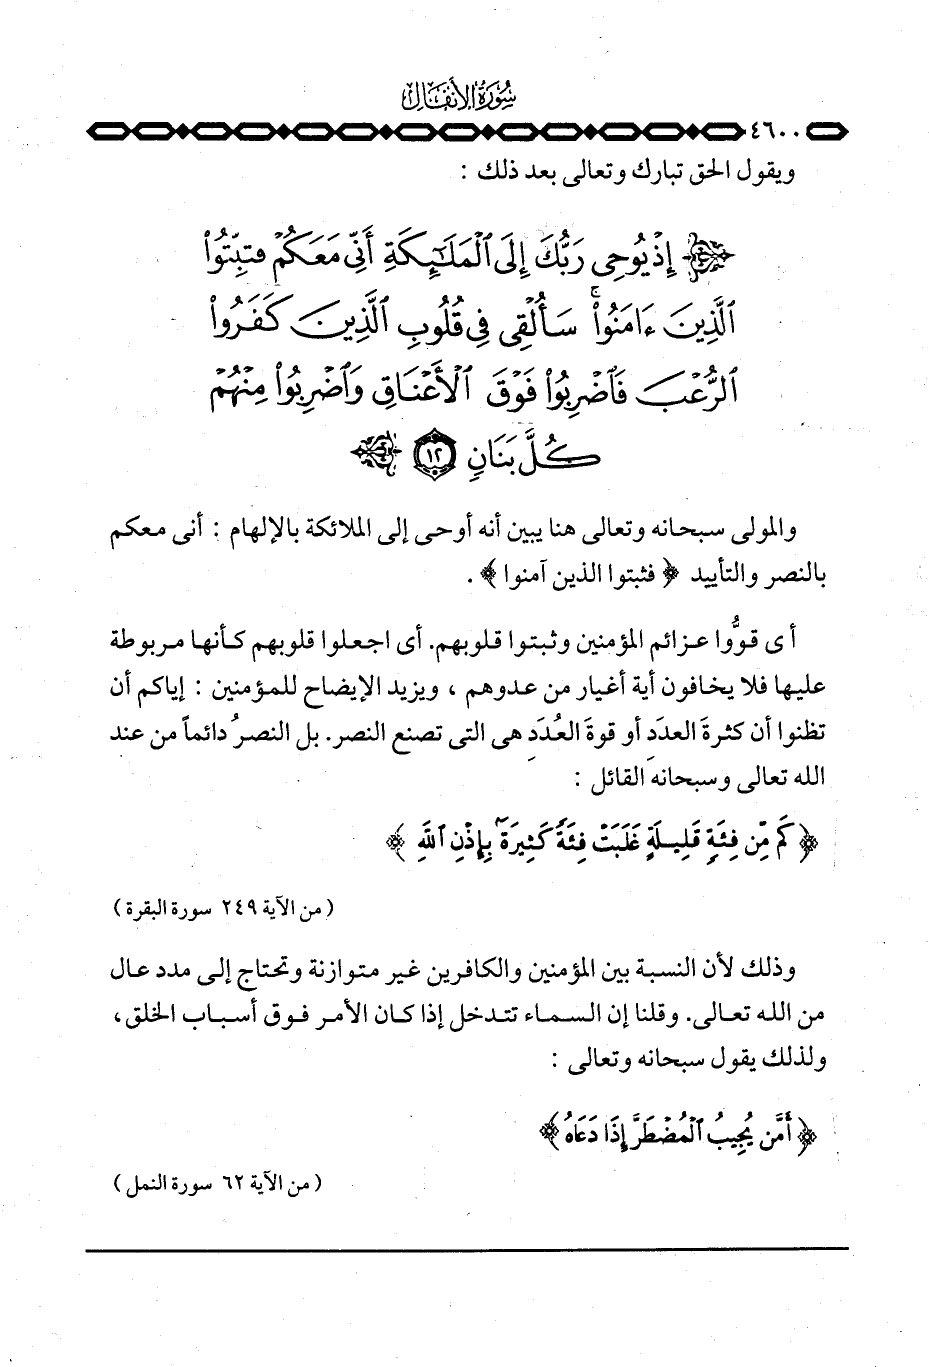 سُورَةُ الأَنفَالِ
٤٦٠٠
ويقول الحق تبارك وتعالى بعد ذلك :
إِذْ يُوحِى رَبُّكَ إِلَى ٱلْمَلَٰٓئِكَةِ أَنِّى مَعَكُمْ فَثَبِّتُوا۟
ٱلَّذِينَ ءَامَنُوا۟ۚ سَأُلْقِى فِى قُلُوبِ ٱلَّذِينَ كَفَرُوا۟
ٱلرُّعْبَ فَٱضْرِبُوا۟ فَوْقَ ٱلْأَعْنَاقِ وَٱضْرِبُوا۟ مِنْهُمْ
كُلَّ بَنَانٍ ١٢
والمولى سبحانه وتعالى هنا يبين أنه أوحى إلى الملائكة بالإلهام : أنى معكم
بالنصر والتأييد ﴿ فثبتوا الذين آمنوا ﴾ .
أى قوُّوا عزائم المؤمنين وثبتوا قلوبهم. أى اجعلوا قلوبهم كأنها مربوطة
عليها فلا يخافون أية أغيار من عدوهم ، ويزيد الإيضاح للمؤمنين : إياكم أن
تظنوا أن كثرةَ العدَدِ أو قوةَ العُدَدِ هى التى تصنع النصر. بل النصرُ دائماً من عند
الله تعالى وسبحانه القائل :
﴿ كَم مِّن فِئَةٍ قَلِيلَةٍ غَلَبَتْ فِئَةً كَثِيرَةً بِإِذْنِ ٱللَّهِ ﴾
( من الآية ٢٤٩ سورة البقرة )
وذلك لأن النسبة بين المؤمنين والكافرين غير متوازنة وتحتاج إلى مدد عال
من الله تعالى. وقلنا إن السماء تتدخل إذا كان الأمر فوق أسباب الخلق ،
ولذلك يقول سبحانه وتعالى :
﴿ أَمَّن يُجِيبُ ٱلْمُضْطَرَّ إِذَا دَعَاهُ ﴾
( من الآية ٦٢ سورة النمل )